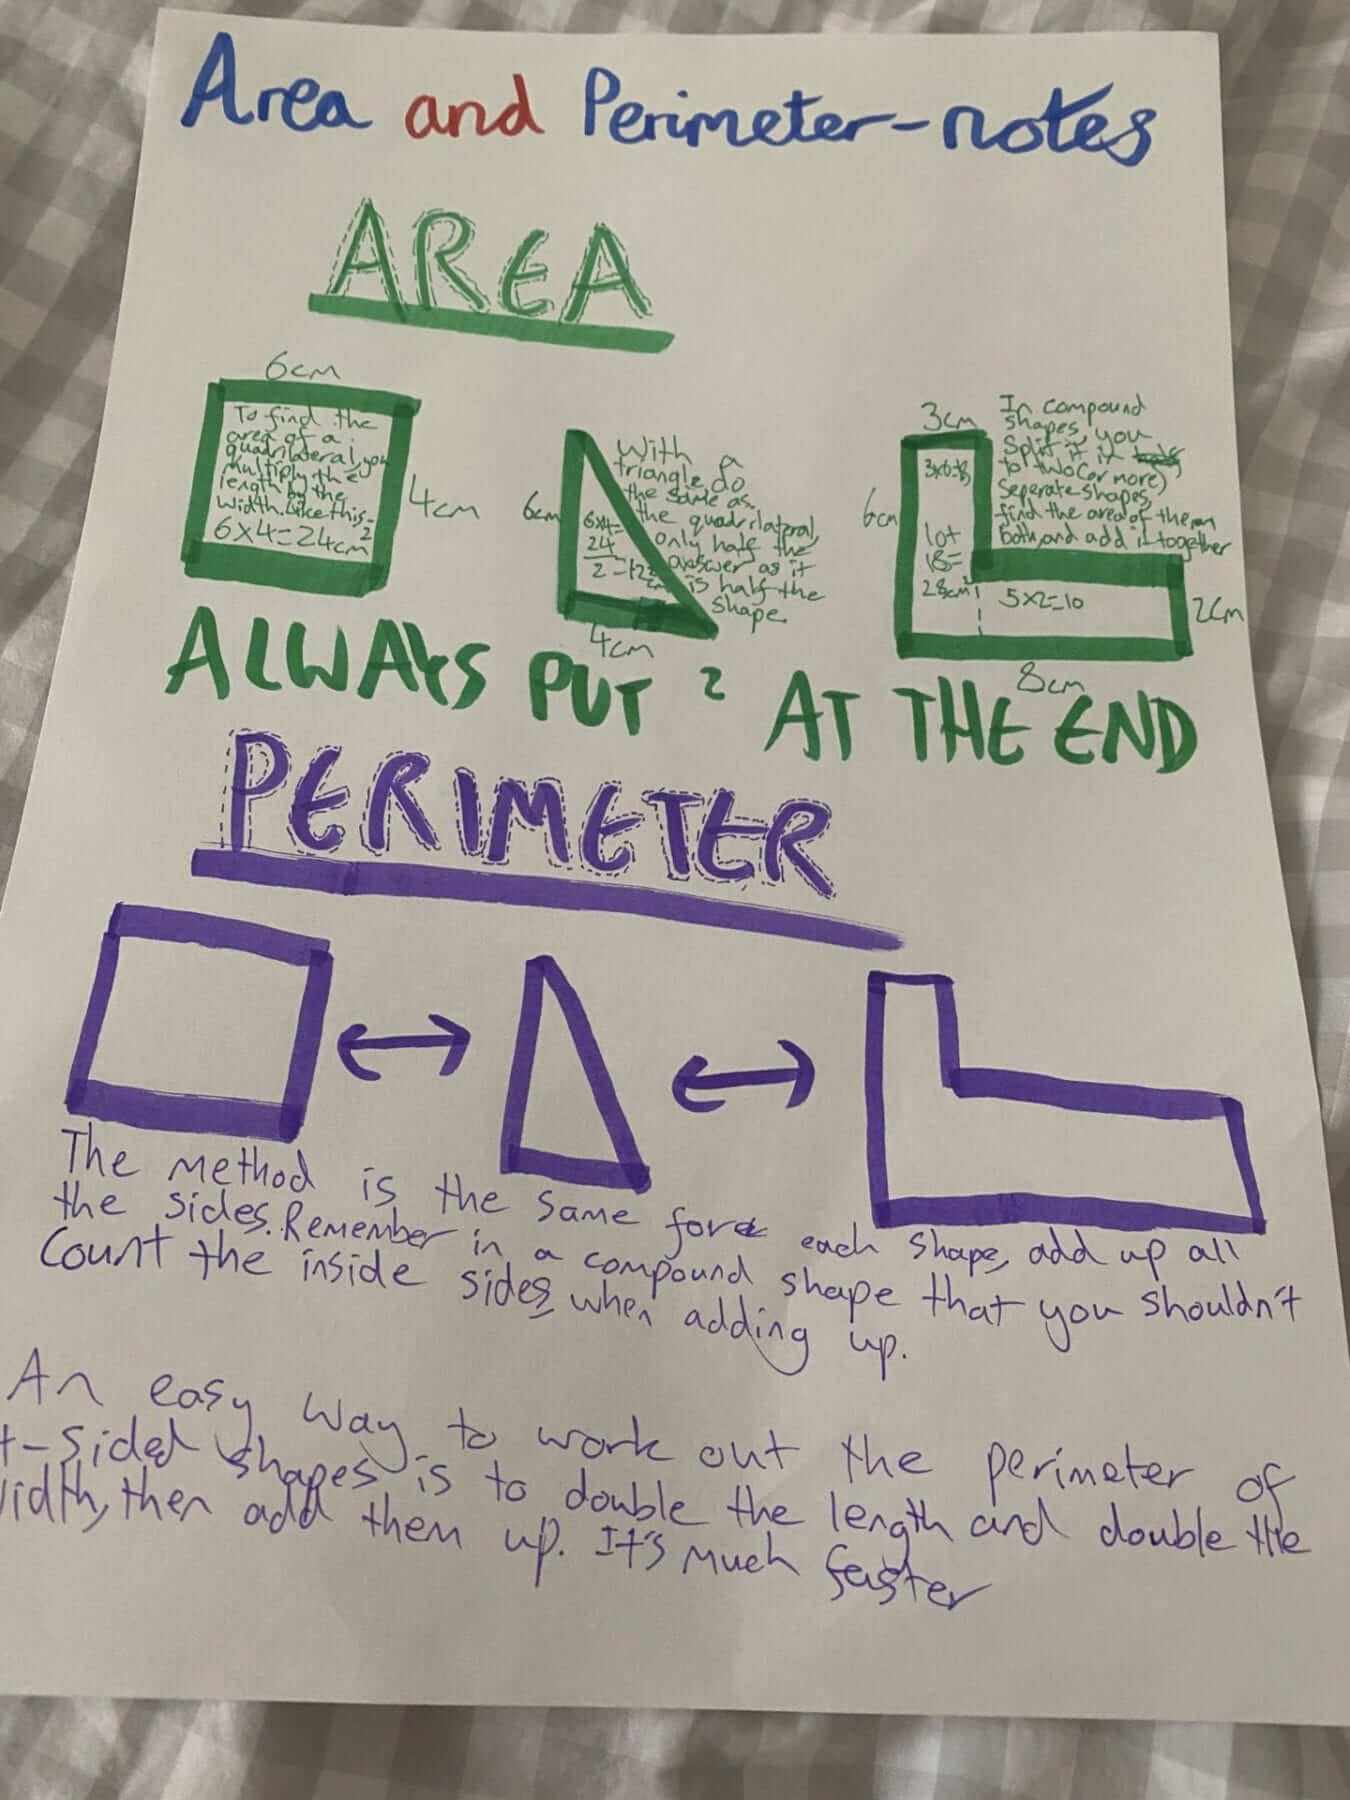 Area and Perimeter-notes
AREA
6cm
To find the
area of a
quadrilateral, you
multiply the
length by the
width. Like this-
6x4=24cm²
4cm
6cm
With a
triangle, do
the same as
the quadrilateral,
only half the
answer as it
is half the
shape.
6x4=
24
2 =12
cm
4cm
3cm
In compound
shapes, you
Split it it
to two (or more)
seperate shapes,
find the area of them
both, and add it together
6cm
3x6=18
10+
18=
28cm²
5x2=10
2cm
8cm
ALWAYS PUT ² AT THE END
PERIMETER
The method is the same for each shape, add up all
the sides. Remember in a compound shape that you shouldn't
count the inside sides, when adding up.
An easy way to work out the perimeter of
4-sided shapes is to double the length and double the
width, then add them up. It's much faster